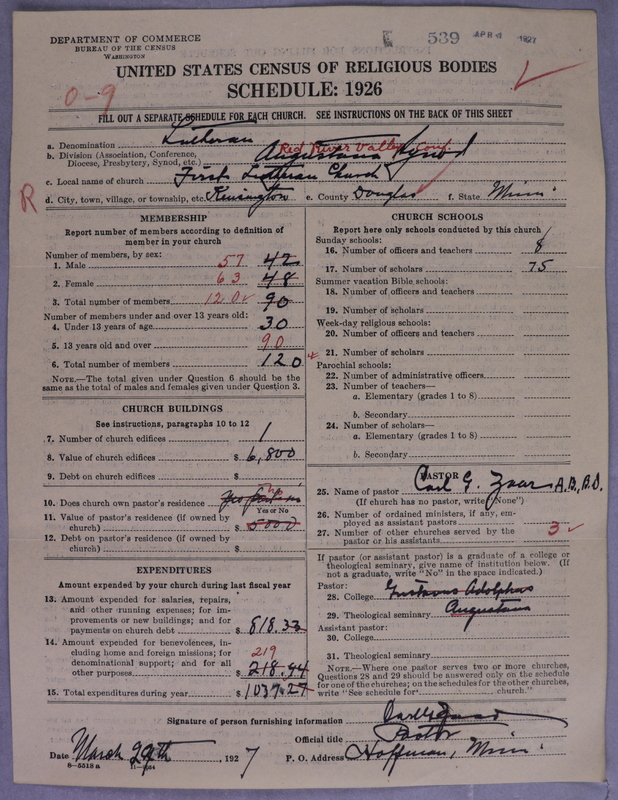 539 APR 4 1927
DEPARTMENT OF COMMERCE
BUREAU OF THE CENSUS
WASHINGTON
UNITED STATES CENSUS OF RELIGIOUS BODIES
SCHEDULE: 1926
0-9
FILL OUT A SEPARATE SCHEDULE FOR EACH CHURCH. SEE INSTRUCTIONS ON THE BACK OF THIS SHEET
a. Denomination Lutheran
Red River Valley Conf.
b. Division (Association, Conference, Diocese, Presbytery, Synod, etc.) Augustana Synod
c. Local name of church First Lutheran Church
R
d. City, town, village, or township, etc. Kensington e. County Douglas f. State Minn.
MEMBERSHIP
Report number of members according to definition of member in your church
Number of members, by sex:
1. Male 57 42
2. Female 63 48
3. Total number of members 120 90
Number of members under and over 13 years old:
4. Under 13 years of age 30
5. 13 years old and over 90
6. Total number of members 120
NOTE.—The total given under Question 6 should be the same as the total of males and females given under Question 3.
CHURCH BUILDINGS
See instructions, paragraphs 10 to 12
7. Number of church edifices 1
8. Value of church edifices $ 6,800
9. Debt on church edifices $
10. Does church own pastor's residence no
Yes or No
11. Value of pastor's residence (if owned by church) $ 5000
12. Debt on pastor's residence (if owned by church) $
EXPENDITURES
Amount expended by your church during last fiscal year
13. Amount expended for salaries, repairs, and other running expenses; for improvements or new buildings; and for payments on church debt $ 818.33
14. Amount expended for benevolences, including home and foreign missions; for denominational support; and for all other purposes 219 $ 218.94
15. Total expenditures during year $ 1037.27
CHURCH SCHOOLS
Report here only schools conducted by this church
Sunday schools:
16. Number of officers and teachers 8
17. Number of scholars 75
Summer vacation Bible schools:
18. Number of officers and teachers
19. Number of scholars
Week-day religious schools:
20. Number of officers and teachers
21. Number of scholars
Parochial schools:
22. Number of administrative officers
23. Number of teachers—
a. Elementary (grades 1 to 8)
b. Secondary
24. Number of scholars—
a. Elementary (grades 1 to 8)
b. Secondary
PASTOR
25. Name of pastor Carl G. Zaar A.B., B.D.
(If church has no pastor, write "None")
26. Number of ordained ministers, if any, employed as assistant pastors
27. Number of other churches served by the pastor or his assistants 3
If pastor (or assistant pastor) is a graduate of a college or theological seminary, give name of institution below. (If not a graduate, write "No" in the space indicated.)
Pastor:
28. College Gustavus Adolphus
29. Theological seminary Augustana
Assistant pastor:
30. College
31. Theological seminary
NOTE.—Where one pastor serves two or more churches, Questions 28 and 29 should be answered only on the schedule for one of the churches; on the schedules for the other churches, write "See schedule for church."
Signature of person furnishing information Carl G. Zaar
Official title Pastor
Date March 29th, 1927 P. O. Address Hoffman, Minn.
8—5518 a 11—1054